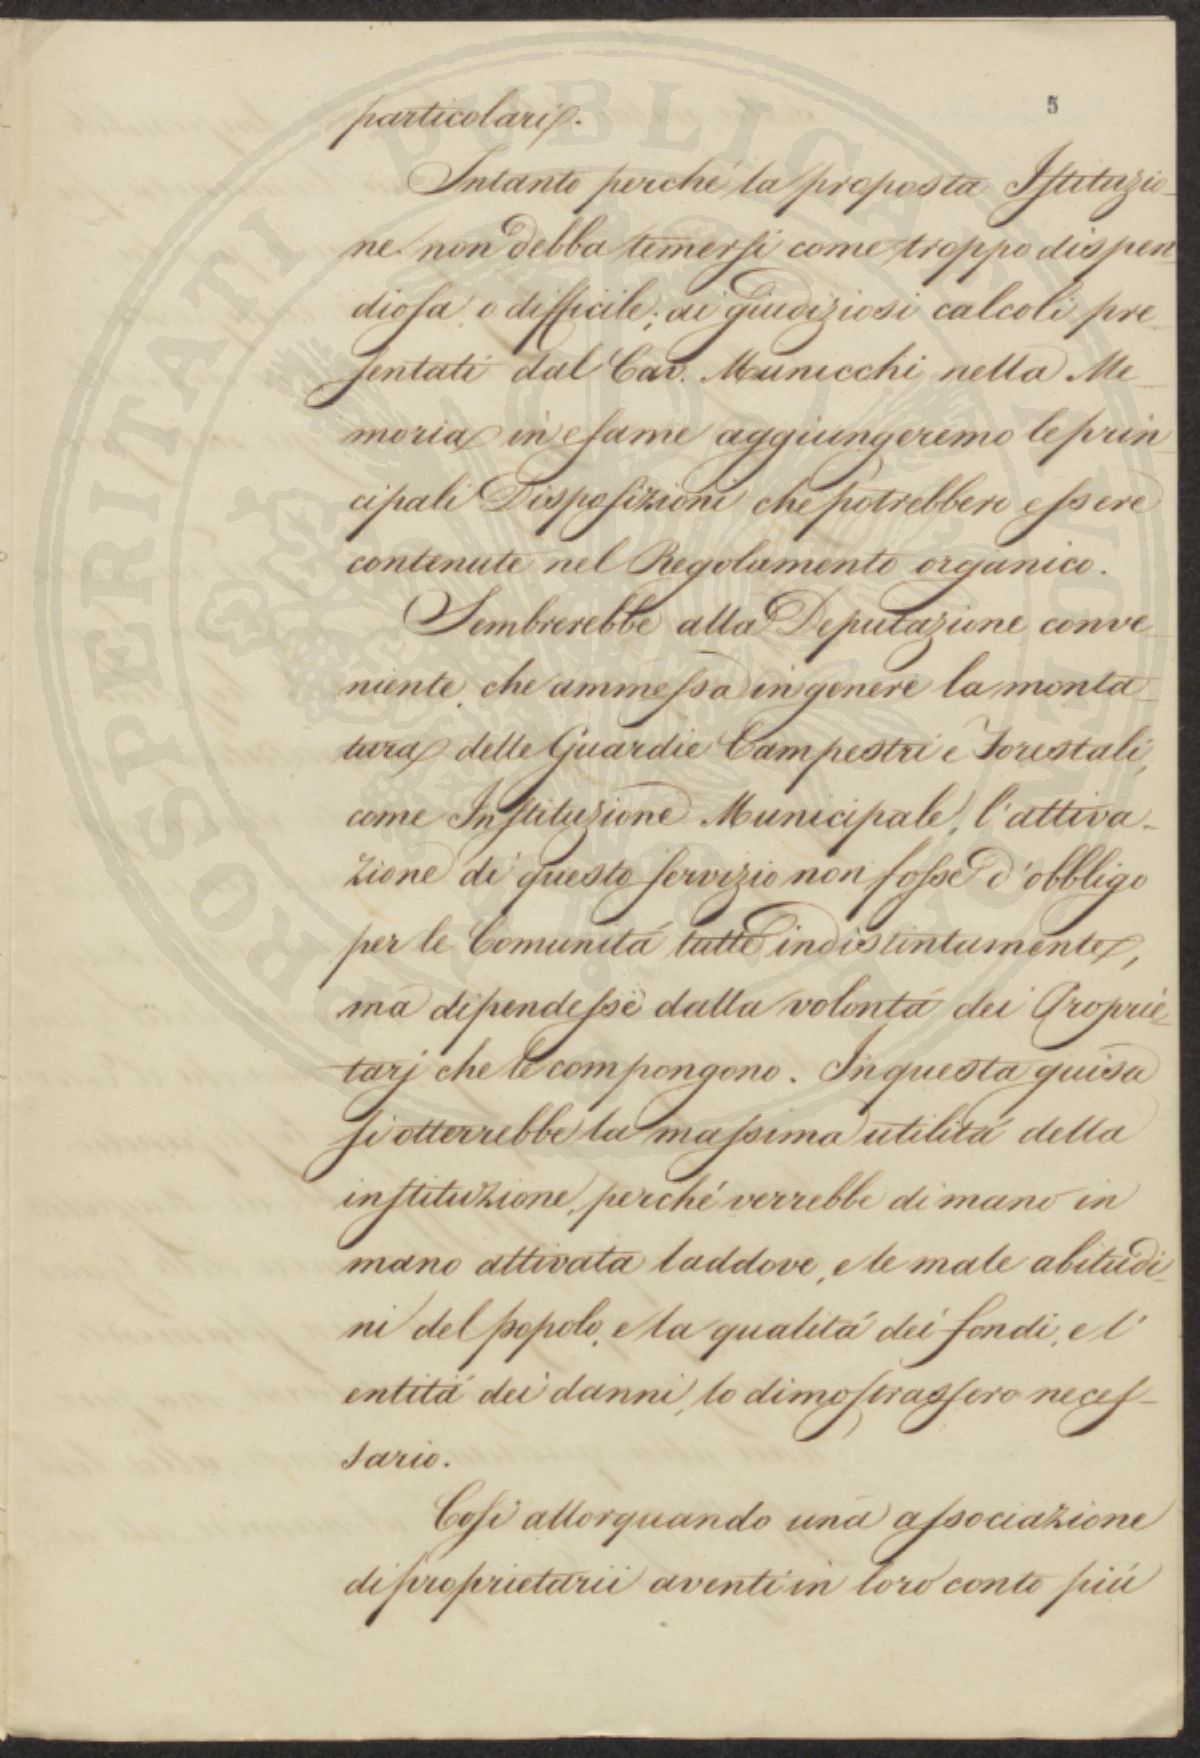 5
particolari.
Intanto perché la proposta Istituzio-
ne non debba temersi come troppo dispen-
diosa o difficile, ai giudiziosi calcoli pre-
sentati dal Cav. Municchi nella Me-
moria in esame aggiungeremo le prin-
cipali Disposizioni che potrebbero essere
contenute nel Regolamento organico.
Sembrerebbe alla Deputazione conve-
niente, che ammessa in genere la monta-
tura delle Guardie Campestri e Forestali,
come Instituzione Municipale, l'attiva-
zione di questo servizio non fosse d'obbligo
per le Comunità tutte indistintamente,
ma dipendesse dalla volontà dei Proprie-
tarj che le compongono. In questa guisa
si otterrebbe la massima utilità della
instituzione, perché verrebbe di mano in
mano attivata laddove, e le male abitudi-
ni del popolo, e la qualità dei fondi, e l'
entità dei danni, lo dimostrassero neces-
sario.
Così allorquando una associazione
di proprietarii aventi in loro conto più
PROSPERITATI PUBLICAE